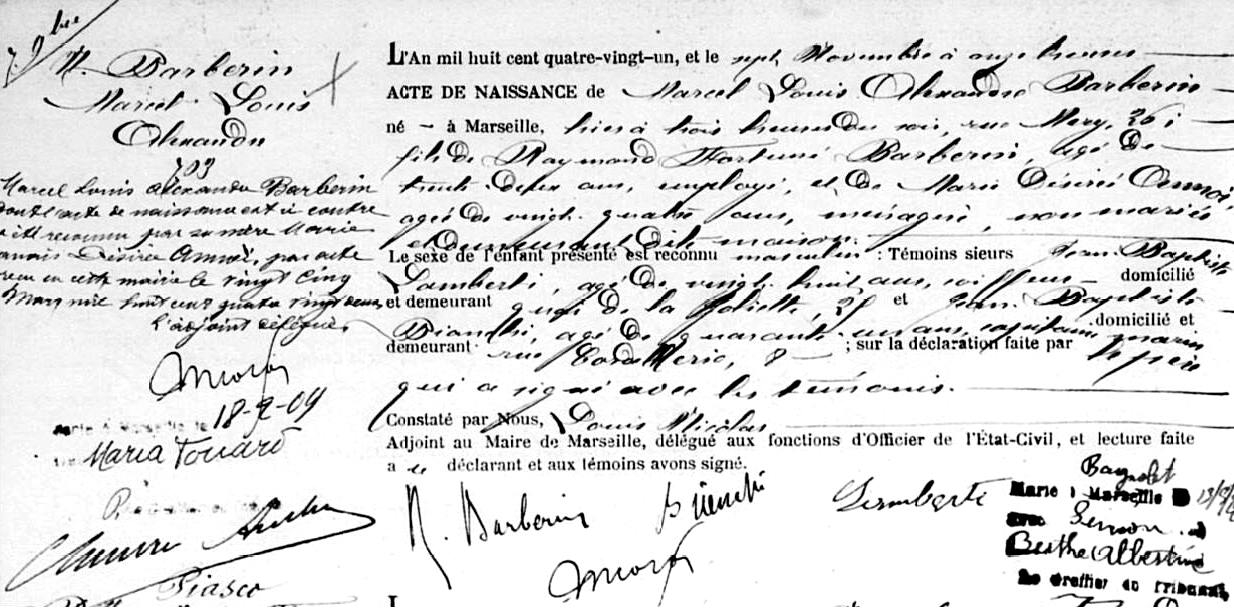 7 9bre
N. Barberin
Marcel Louis
Alexandre
703
Marcel Louis Alexandre Barberin
dont l'acte de naissance est ci contre
a été reconnu par sa mère Marie
Désirée, par acte
reçu en cette mairie le vingt cinq
Mars mil huit cent quatre vingt deux
L'adjoint délégué
18-2-09
Maria Touard
Piasco
L'An mil huit cent quatre-vingt-un, et le sept Novembre à onze heures
ACTE DE NAISSANCE de Marcel Louis Alexandre Barberin
né à Marseille, hier à trois heures du soir, rue Mery, 26 ;
fils de Raymond Fortuné Barberin, agé de
trente-deux ans, employé, et de Marie Désirée
agée de vingt-quatre ans, ménagère, non mariés
et demeurant dite maison.
Le sexe de l'enfant présenté est reconnu masculin : Témoins sieurs Jean Baptiste
Lamberti, agé de vingt huit ans, coiffeur domicilié
et demeurant quai de la Joliette, et Jean Baptiste
Bianchi, agé de quarante-un ans, capitaine marin domicilié et
demeurant rue Coutellerie, 8 ; sur la déclaration faite par le père
qui a signé avec les témoins.
Constaté par Nous, Louis Nicolas
Adjoint au Maire de Marseille, délégué aux fonctions d'Officier de l'État-Civil, et lecture faite
a u déclarant et aux témoins avons signé.
R. Barberin Bianchi Lamberti
Bagnolet
Marié à Marseille le
avec
Berthe Albertine
Le Greffier du Tribunal,